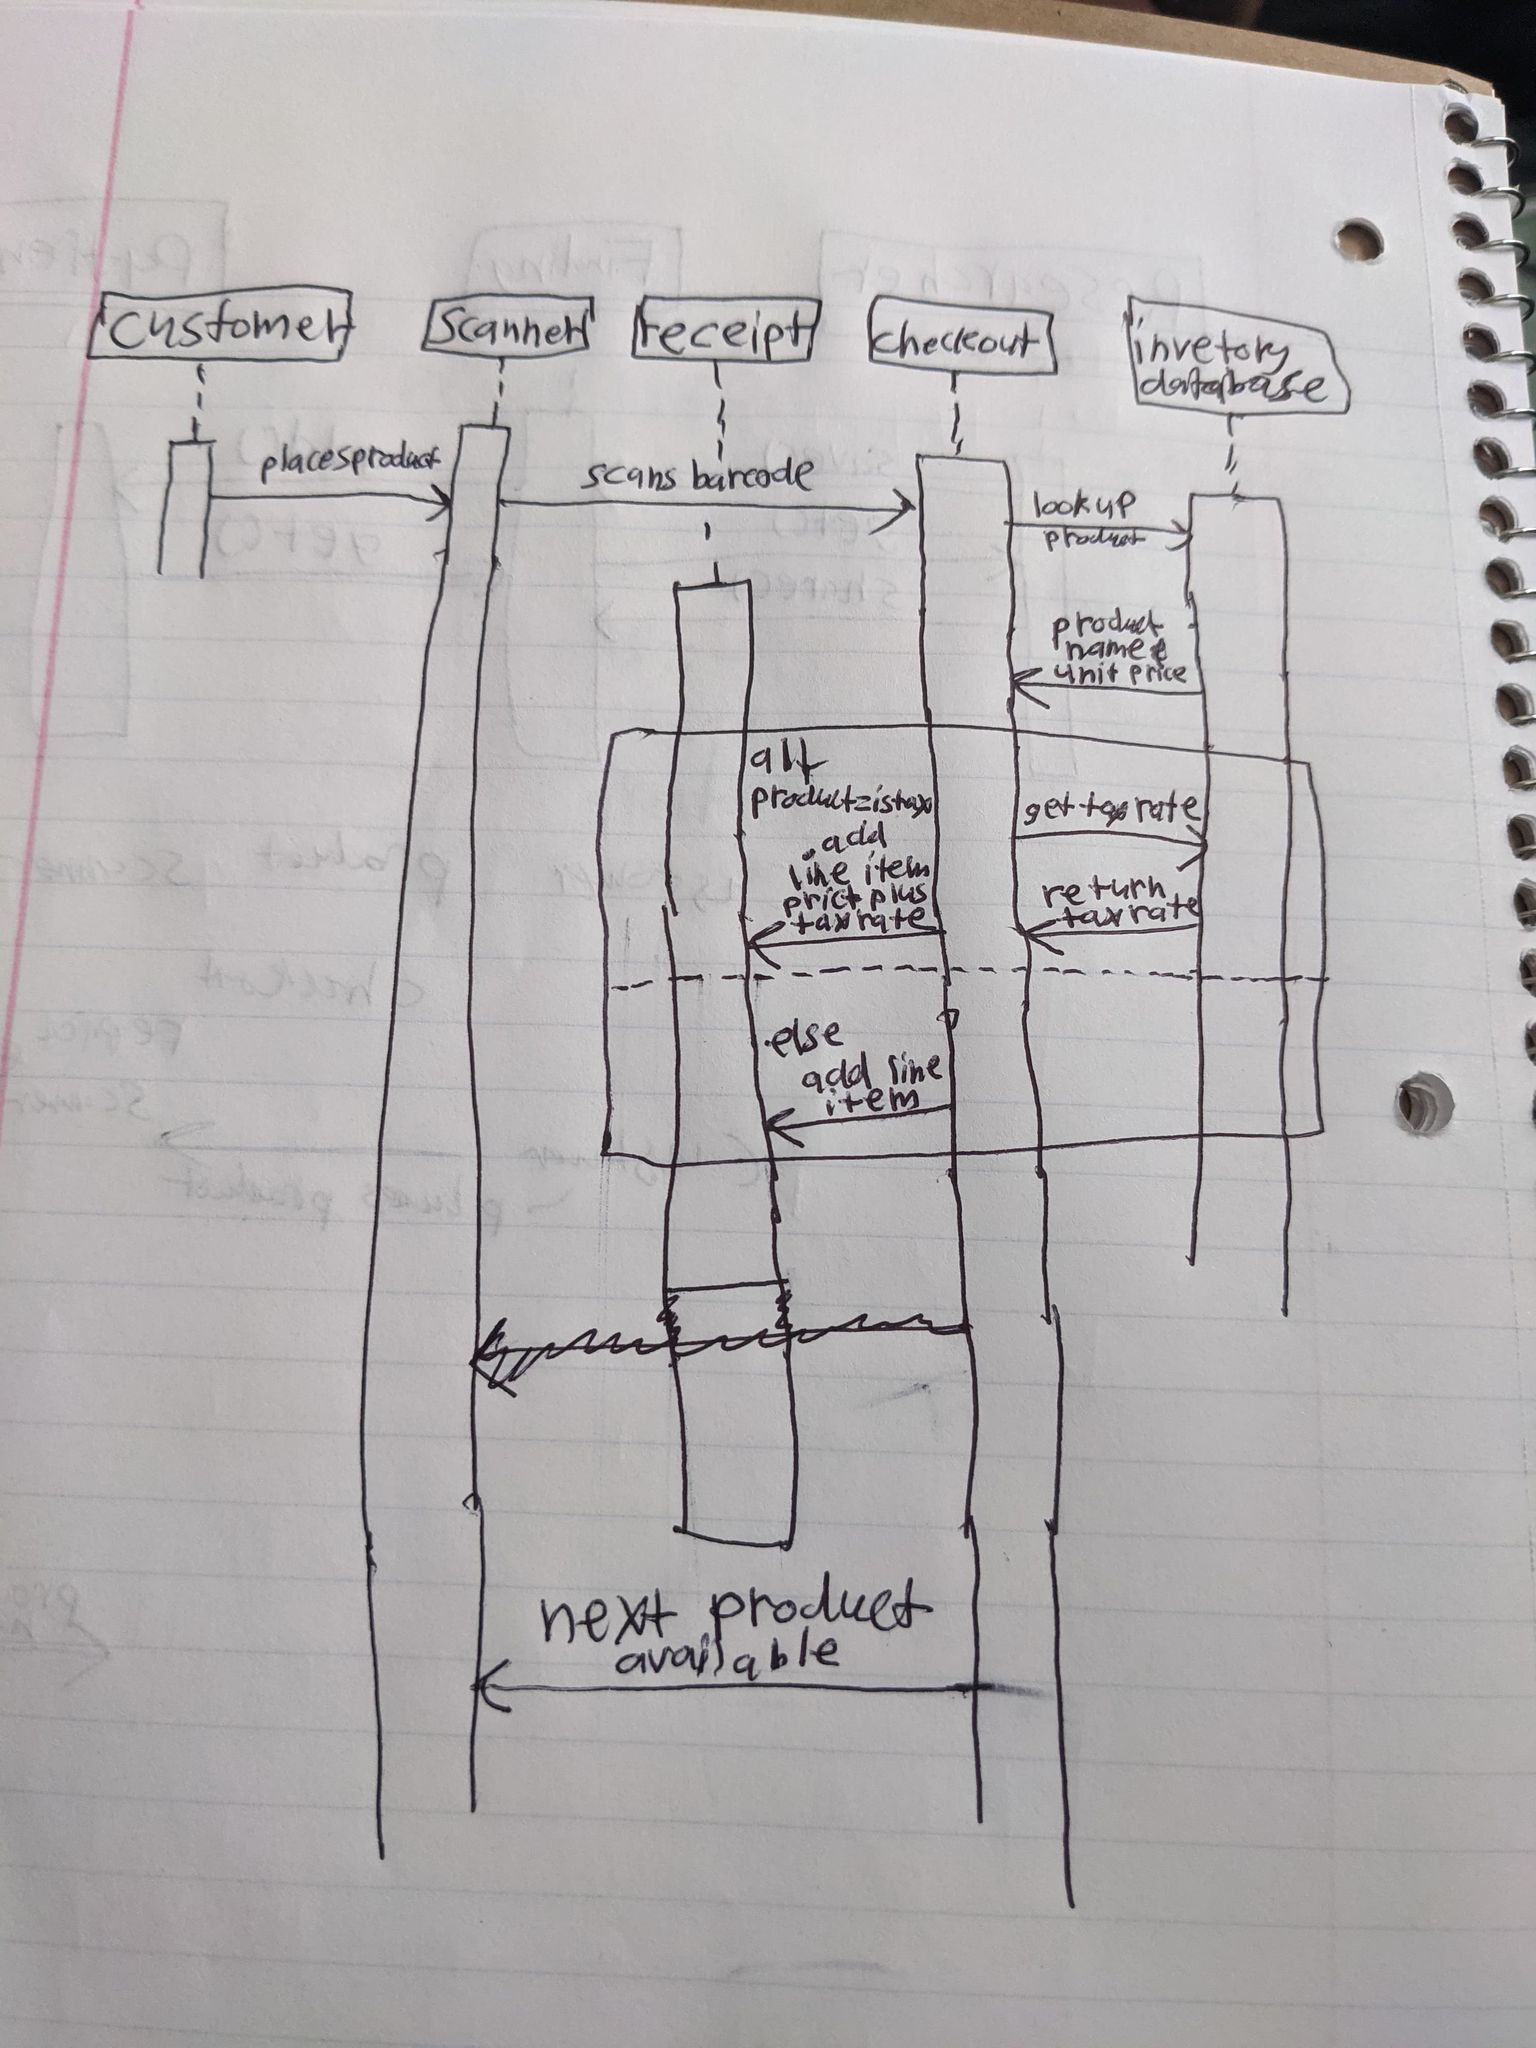 customer
scanner
receipt
checkout
invetory
database
placesproduct
scans barcode
lookup
product
product
name &
unit price
alt
product=istax
get taxrate
add
line item
price plus
taxrate
return
taxrate
else
add line
item
next product
available